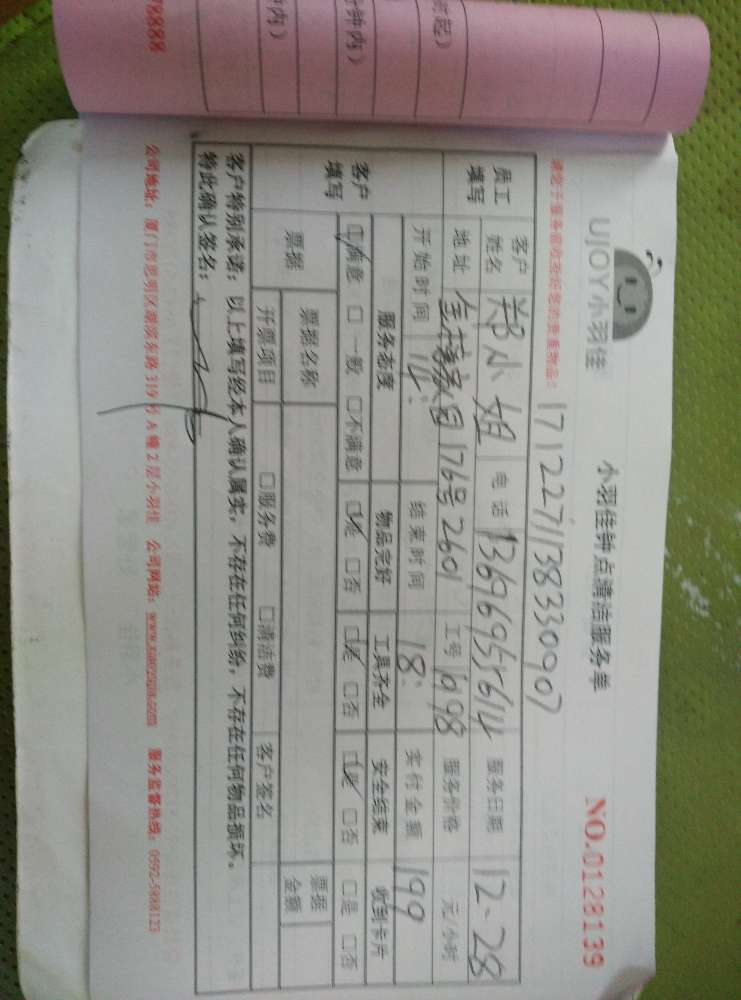 UJOY小羽佳
小羽佳钟点清洁服务单
NO.0128139
1712271138330907
员工填写
客户姓名 郑小姐 电话 13696955614 服务日期 12-28
地址 176号2601 工号 1098 服务价格 元/小时
开始时间 14: 结束时间 18: 实付金额 199
客户填写
服务态度 物品完好 工具齐全 安全结束 收到卡片
☑满意 □一般 □不满意 ☑是 □否 ☑是 □否 ☑是 □否 □是 □否
票据 票据名称 票据金额
开票项目 □服务费 □清洁费 客户签名
客户特别承诺:以上填写经本人确认属实,不存在任何纠纷,不存在任何物品损坏。
特此确认签名:
公司地址:厦门市思明区湖滨东路319号A幢2层小羽佳 公司网站: 服务监督热线:0592-5988123
时起)
分钟内)
钟内)
78888